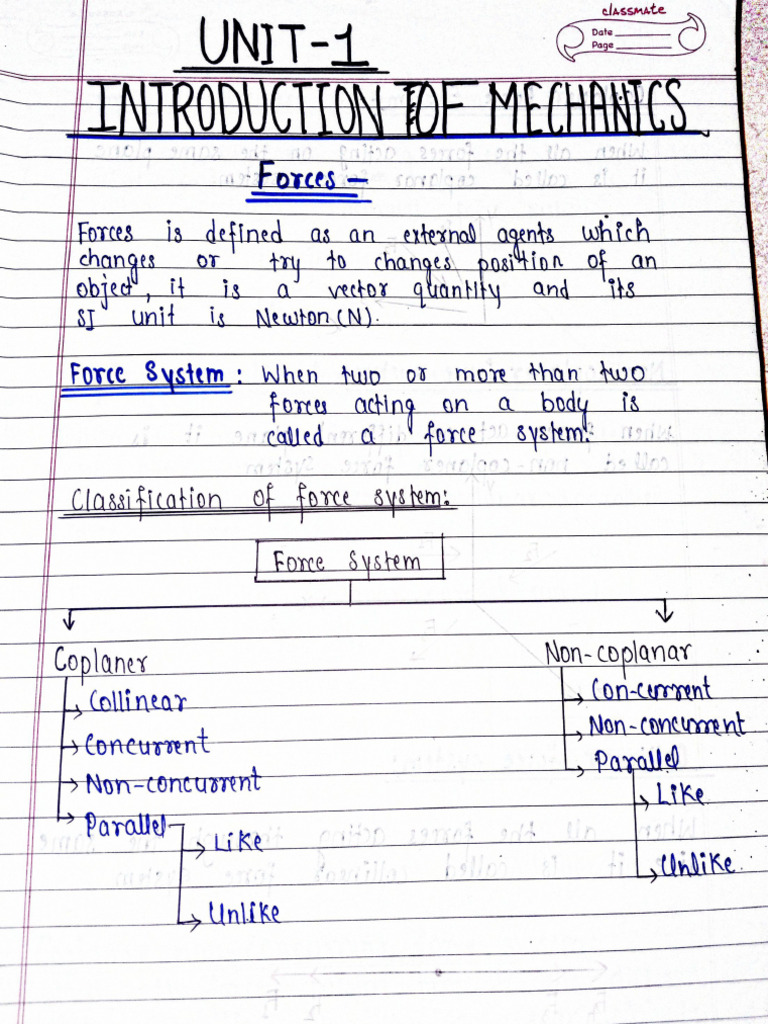 classmate
Date
Page
UNIT-1
INTRODUCTION OF MECHANICS
Forces-
Forces is defined as an external agents which
changes or try to changes position of an
object, it is a vector quantity and its
SI unit is Newton (N).
Force System: When two or more than two
forces acting on a body is
called a force system.
Classification of force system:
Force System
Coplaner
Collinear
Concurrent
Non-concurrent
Parallel
Like
Unlike
Non-coplanar
Con-current
Non-concurrent
Parallel
Like
Unlike